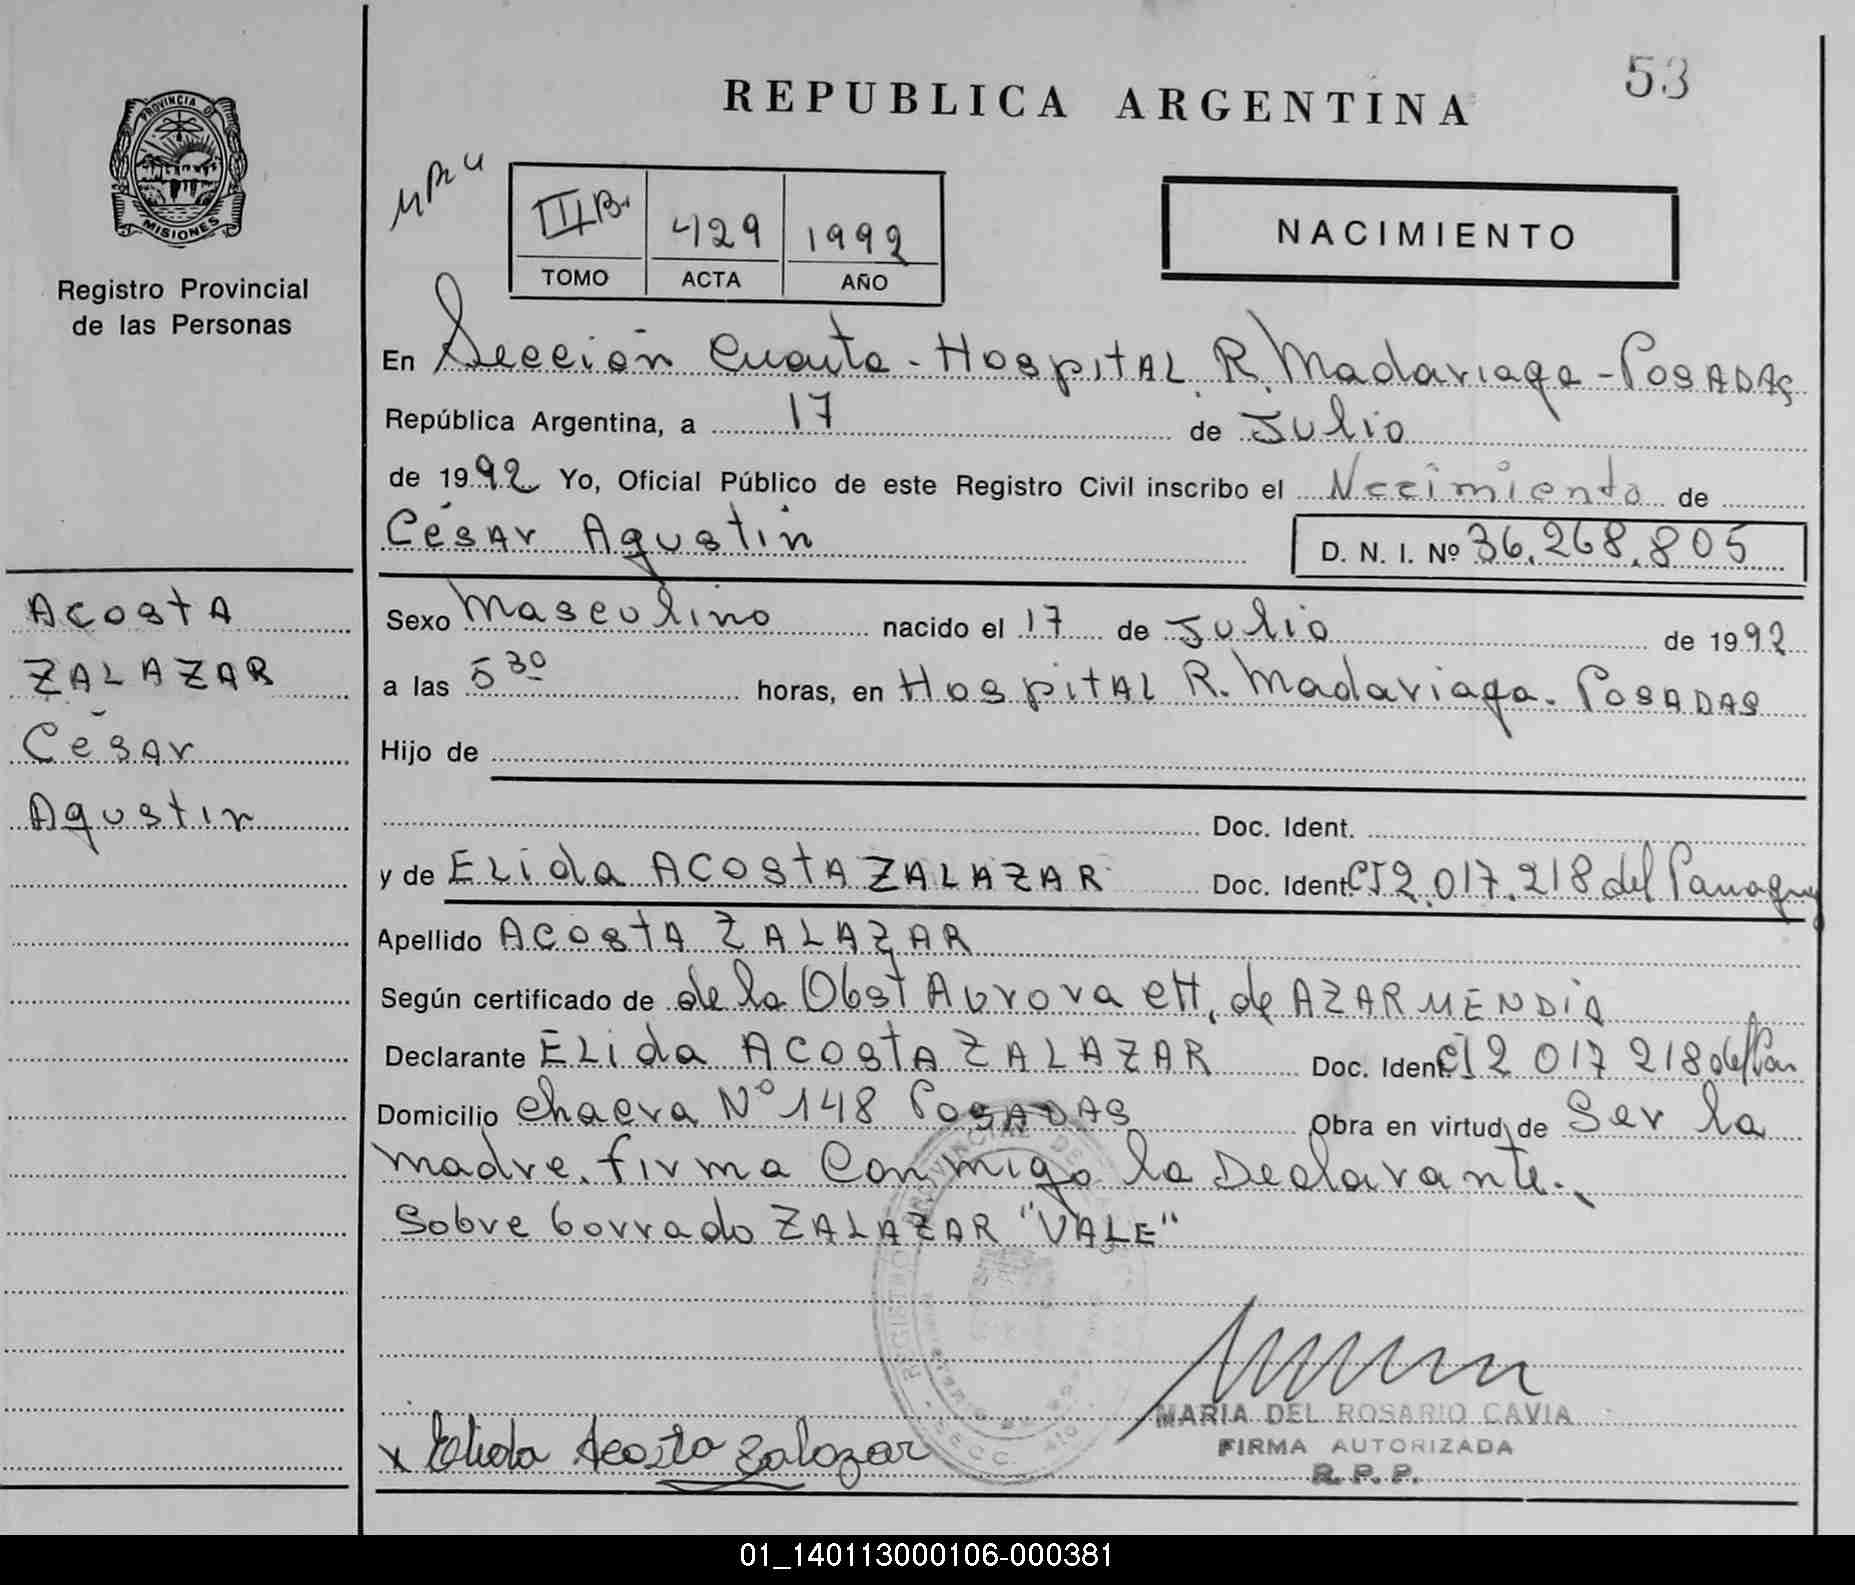 53
REPUBLICA ARGENTINA
PROVINCIA DE
MISIONES
Registro Provincial
de las Personas
III B. 429 1992
TOMO ACTA AÑO
NACIMIENTO
En Sección Cuarta - Hospital R. Madariaga - Posadas
República Argentina, a 17 de Julio
de 1992 Yo, Oficial Público de este Registro Civil inscribo el Nacimiento de
César Agustín D. N. I. Nº 36.268.805
Acosta
ZALAZAR
César
Agustin
Sexo Masculino nacido el 17 de Julio de 1992
a las 5 30 horas, en Hospital R. Madariaga. Posadas
Hijo de
Doc. Ident.
y de Elida Acosta ZALAZAR Doc. Ident. CI 2.017.218 del Paraguay
Apellido Acosta ZALAZAR
Según certificado de de la Obst Aurora de AZARMENDIA
Declarante Elida Acosta ZALAZAR Doc. Ident. CI 2 017 218 del Par
Domicilio Chacra Nº 148 Posadas Obra en virtud de Ser la
madre. firma Conmigo la Declarante.
Sobre borrado ZALAZAR "VALE"
x Elida Acosta Zalazar
MARIA DEL ROSARIO CAVIA
FIRMA AUTORIZADA
R. P. P.
01_140113000106-000381